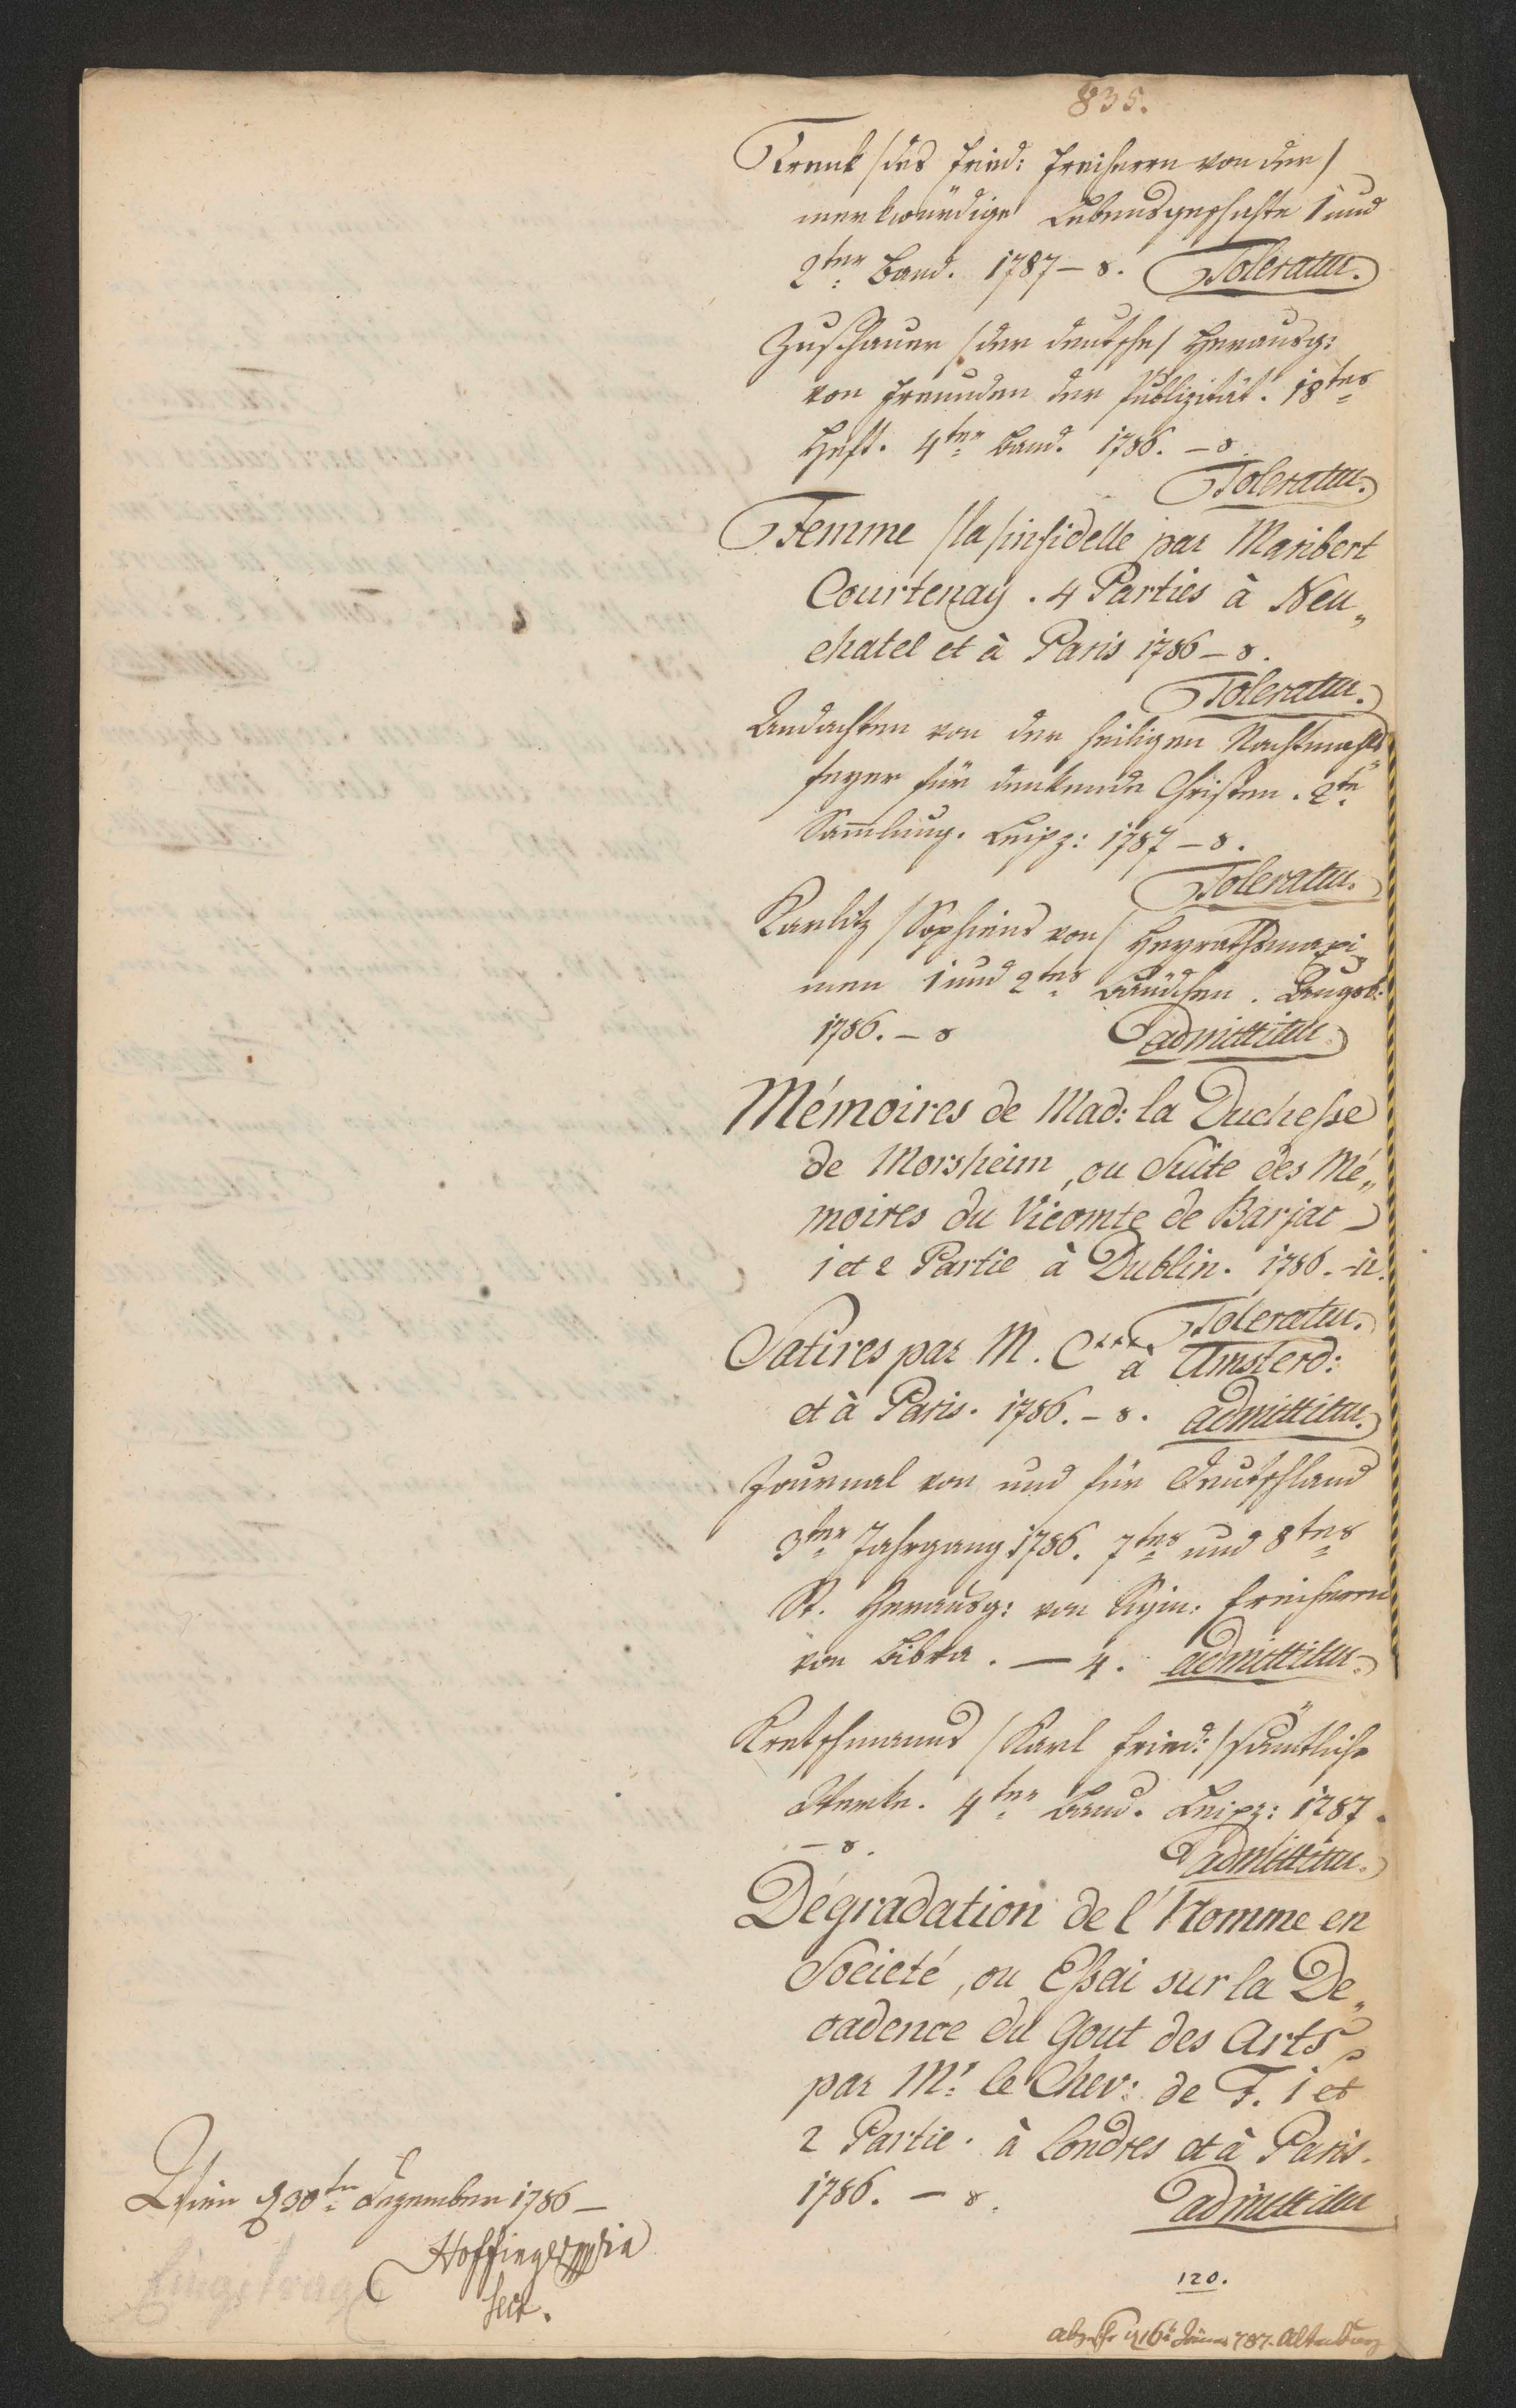 835.
Trenk /des Fried: Freiherrn von der/
merkwürdige Lebensgeschichte 1 und
2ter Band. 1787 – 8. Toleratur.
Zuschauer /der deutsche/ Herausg:
von Freunden der Publizität. 18tes
Heft. 4ter Band. 1786. – 8.
Toleratur.
Femme /la/ infidelle par Maribert
Courtenay. 4 Parties à Neu„
chatel et à Paris 1786 – 8.
Toleratur.
Andachten von der heiligen Nachtmahls„
feyer für denkende Christen. 2te
Sam̄lung. Leipz: 1787 – 8.
Toleratur.
Karlitz /Sophiens von/ Heyrathsmaxi„
men 1 und 2tes Bändchen. Augsb:
1786. – 8 admittitur
Mémoires de Mad: la Duchesse
de Morsheim, ou Suite des Mé„
moires du Vicomte de Barjac –
1 et 2 Partie à Dublin. 1786. – 12.
Toleratur.
Satires par M. C*** à Amsterd:
et à Paris. 1786. – 8. admittitur.
Journal von und für Deutschland
3ter Jahrgang 1786. 7tes und 8tes
St. Herausg: von Sigm: Freiherrn
von Bibra. – 4. admittitur.
Kretschmanns /Karl Fried:/ sämtliche
Werke. 4ter Band. Leipz: 1787.
– 8. admittitur.
Dégradation de l'Homme en
Societé, ou Essai sur la De„
cadence du Gout des Arts
par Mr: le Chev: de F. 1 et
2 Partie. à Londres et à Paris.
1786. – 8. admittitur
Wien d 30ten Dezember 1786 –
Hoffinger mpria
Secr.
120.
16t Jäner 787. Altenburg